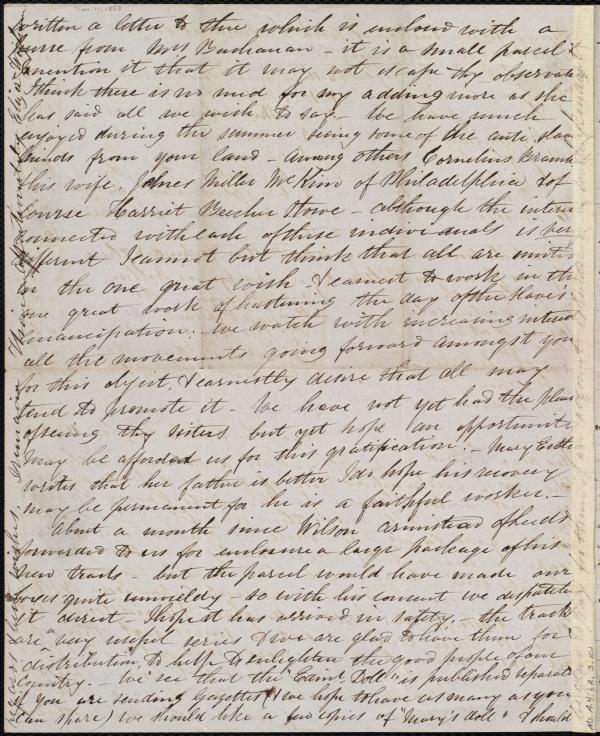 Nov. 11, 1853
written a letter to thee which is enclosed with a
purse from Mrs Buchanan - it is a small parcel &
mention it that it may not escape thy observati
I think there is no need for my adding more as she
has said all we wish to say - We have much
enjoyed during the summer seeing some of the anti slav
friends from your land - Among others Cornelius Bramh
his wife, James Miller McKim of Philadelphia & of
course Harriet Beecher Stowe - although the interes
connected with each of these individuals is ver
different I cannot but think that all are united
in the one great wish - & earnest to work in the
one great work of hastening the day of the slave's
emancipation; - We watch with increasing interes
all the movements going forward amongst you
for this object & earnestly desire that all may
tend to promote it - We have not yet had the pleas
of seeing thy sisters but yet hope an opportunit
may be afforded us for this gratification. - Mary Estli
writes that her father is better I do hope his recovery
may be permanent for he is a faithful worker. -
About a month since Wilson Armistead of Leeds
forwarded to us for enclosure a large package of his
new tracts - but the parcel would have made our
boxes quite unwieldy - so with his consent we dispatche
it direct - I hope it has arrived in safety. - the tracts
are "very useful series & we are glad to have them for
"distribution", to help to enlighten the good people of our
country. - We see that the "Earnt Doll" is published separate
if you are sending Gazettes (& we hope to have as many as you
can spare) we should like a few copies of "Mary's doll" & should
Ms. A.9.2